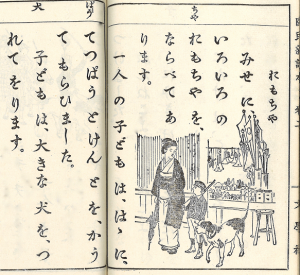 おもちや
みせに、
いろいろの
おもちやを、
ならべてあ
ります。
一人の子どもは、はゝに、
てつぱうとけんとを、かう
てもらひました。
子どもは、大きな犬を、つ
れてをります。
ちや
犬